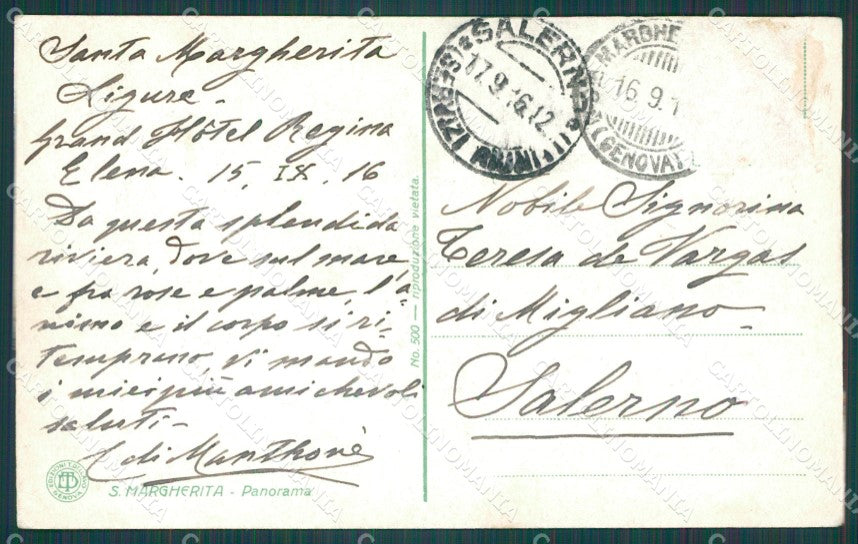 Santa Margherita
Ligure -
Grand Hôtel Regina
Elena. 15. IX. 16
Da questa splendida
riviera, dove sul mare,
e fra rose e palme, l'a-
nimo e il corpo si ri-
temprano, vi mando
i miei più amichevoli
saluti -
di Manthonè
S. MARGHERITA - Panorama
EDIZIONI
GENOVA
No. 500 — riproduzione vietata.
SALERNO
17.9.16.12
MARGHE
16 9.1
(GENOVA)
Nobile Signorina
Teresa de Vargas
di Migliano -
Salerno
CARTOLINOMANIA